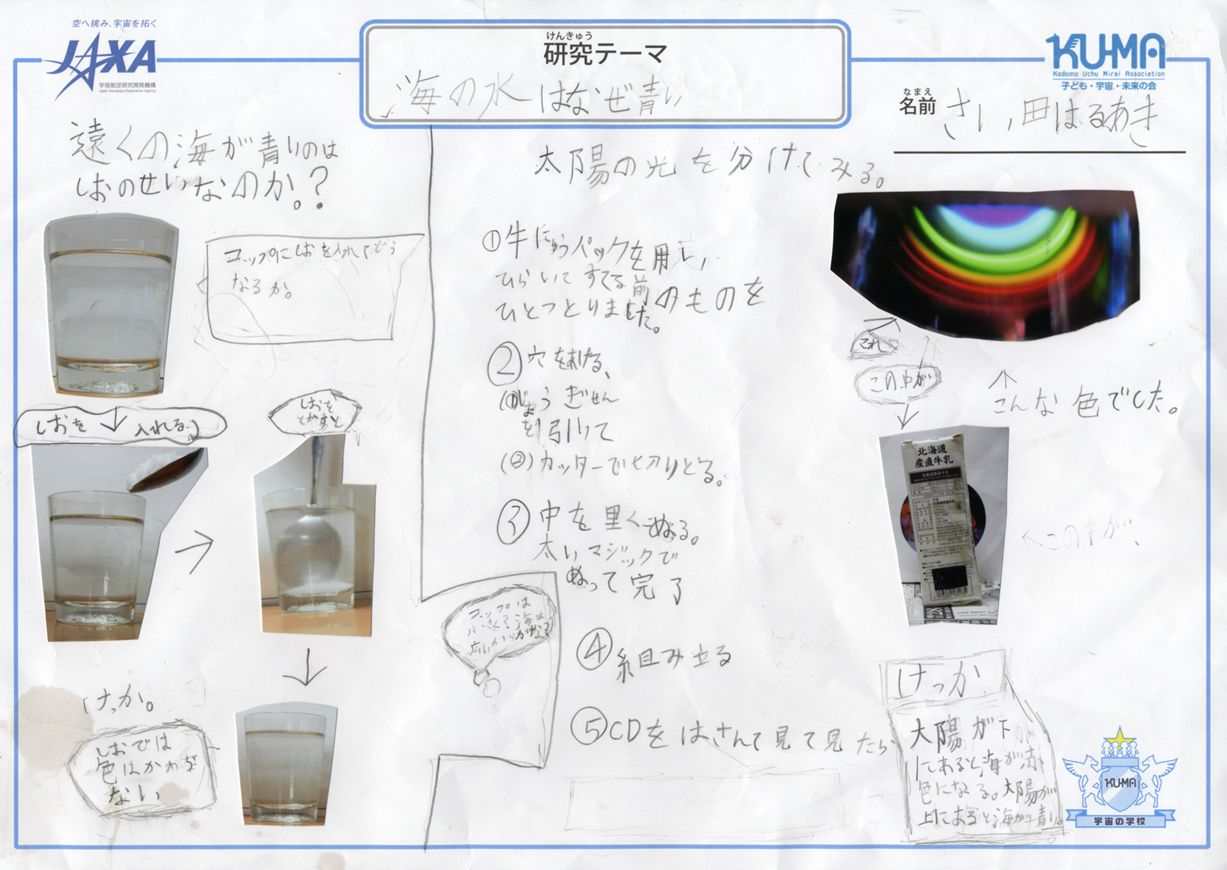 空へ挑み、宇宙を拓く
JAXA
宇宙航空研究開発機構
Japan Aerospace Exploration Agency
けんきゅう
研究テーマ
海の水はなぜ青い
KU-MA
Kodomo Uchu Mirai Association
子ども・宇宙・未来の会
なまえ
名前
さい田はるあき
遠くの海が青いのは
しおのせいなのか。?
コップにしおを入れてどう
なるか。
しおを入れる。
しおを
とかすと
けっか。
しおでは
色はかわら
ない
太陽の光を分けてみる。
①牛にゅうパックを用い
ひらいてすてる前のものを
ひとつとりました。
②穴をあける、
(①)じょうぎせん
を引いて
(②)カッターで切りとる。
③中を黒くぬる。
太いマジックで
ぬって完了
コップは
小さくて海は
広いから
④組み立る
⑤CDをはさんで見て見たら
これ
この中が
こんな色でした。
北海道
産直牛乳
この中が、
けっか
太陽が下
にあると海が赤
色になる。太陽が
上にあると海が青い。
KU-MA
宇宙の学校